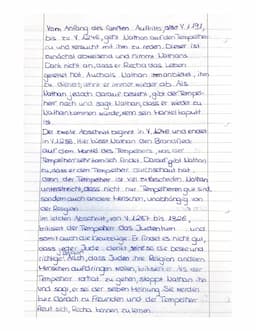 Vom Anfang des fünften Auftritts, also V. 1191,
bis zu V. 1246, geht Nathan auf den Tempelherrn
zu und versucht mit ihm zu reden. Dieser ist
zunächst abweisend und nimmt Nathans
Dank nicht an, dass er Recha das Leben
gerettet hat. Auch als Nathan ihm anbietet, ihm
zu dienen, lehnt er immer wieder ab. Als
Nathan jedoch darauf besteht, gibt der Tempel-
herr nach und sagt Nathan, dass er wieder zu
Nathan kommen würde, wenn sein Mantel kaputt
ist.
Der zweite Abschnitt beginnt in V. 1246 und endet
in V. 1256. Hier küsst Nathan den Brandfleck
auf dem Mantel des Tempelherrn, was der
Tempelherr sehr komisch findet. Darauf gibt Nathan
zu, dass er den Tempelherr durchschaut hat,
denn der Tempelherr ist viel Nathan
unterstreicht, dass nicht nur Tempelherren gut sind,
sondern auch andere Menschen, unabhängig von
der Religion.
Im letzten Abschnitt, von V. 1257 bis 1326,
kritisiert der Tempelherr das Judentum und
somit auch die Kreuzzüge. Er findet es nicht gut,
dass jeder Jude denkt, seine sei die beste und
richtige. Auch, dass Juden ihre Religion anderen
Menschen aufdringen wollen, kritisiert er. Als der
Tempelherr vorhat zu gehen, stoppt Nathan ihn
und sagt, er sei der selben Meinung. Sie werden
kurz danach zu Freunden und der Tempelherr
freut sich, Recha kennen zu lernen.